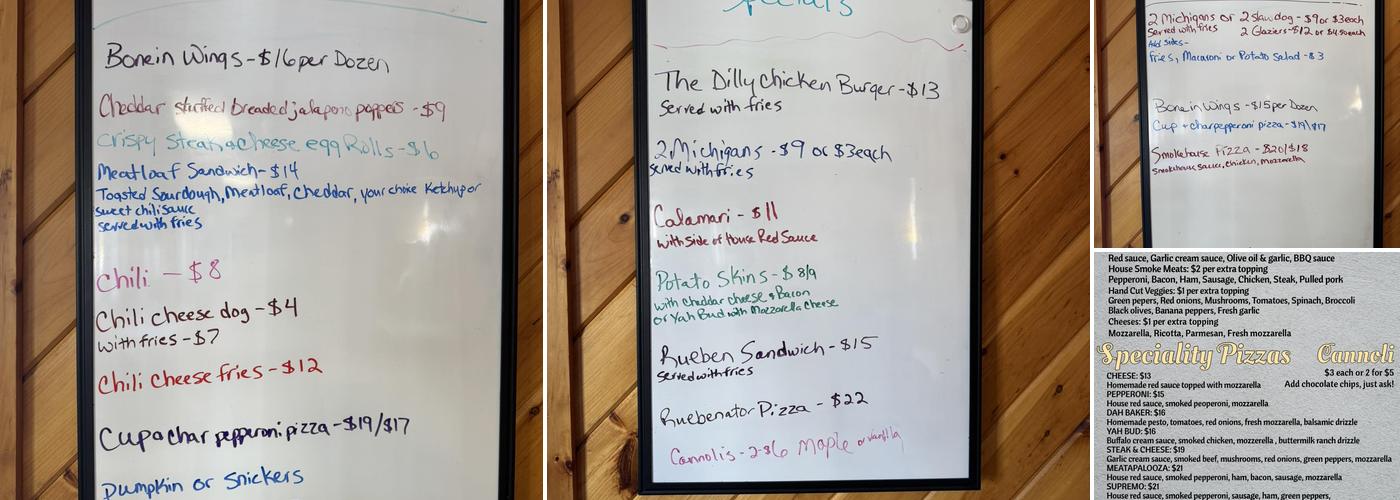 Bonein Wings - $16 per Dozen
Cheddar stuffed breaded jalapono poppers - $9
Crispy Steak & Cheese egg Rolls - $6
Meatloaf Sandwich - $14
Toasted Sourdough, Meatloaf, Cheddar, your choice Ketchup or
sweet chili sauce
served with fries
Chili - $8
Chili cheese dog - $4
with fries - $7
Chili Cheese fries - $12
Cup a char pepperoni pizza - $19/$17
Pumpkin or Snickers
Specials
The Dilly Chicken Burger - $13
Served with fries
2 Michigans - $9 or $3each
served with fries
Calamari - $11
with Side of House Red Sauce
Potato Skins - $8/9
with Cheddar cheese & Bacon
or Yah Bud with Mozzarella Cheese
Rueben Sandwich - $15
Served with fries
Ruebenator Pizza - $22
Cannolis - 2-$6 Maple or vanilla
2 Michigans or 2 slaw dog - $9 or $3each
Served with fries 2 Glaziers - $12 or $4.50 each
Add Sides -
fries, Macaroni or Potato Salad - $3
Bone in Wings - $15 per Dozen
Cup + char pepperoni pizza - $19/$17
Smokehouse Pizza - $20/$18
Smokehouse Sauce, Chicken, Mozzarella
Red sauce, Garlic cream sauce, Olive oil & garlic, BBQ sauce
House Smoke Meats: $2 per extra topping
Pepperoni, Bacon, Ham, Sausage, Chicken, Steak, Pulled pork
Hand Cut Veggies: $1 per extra topping
Green pepers, Red onions, Mushrooms, Tomatoes, Spinach, Broccoli
Black olives, Banana peppers, Fresh garlic
Cheeses: $1 per extra topping
Mozzarella, Ricotta, Parmesan, Fresh mozzarella
Speciality Pizzas
Cannoli
$3 each or 2 for $5
Add chocolate chips, just ask!
CHEESE: $13
Homemade red sauce topped with mozzarella
PEPPERONI: $15
House red sauce, smoked peoperoni, mozzarella
DAH BAKER: $16
Homemade pesto, tomatoes, red onions, fresh mozzarella, balsamic drizzle
YAH BUD: $16
Buffalo cream sauce, smoked chicken, mozzerella , buttermilk ranch drizzle
STEAK & CHEESE: $19
Garlic cream sauce, smoked beef, mushrooms, red onions, green peppers, mozzarella
MEATAPALOOZA: $21
House red sauce, smoked pepperoni, ham, bacon, sausage, mozzarella
SUPREMO: $21
House red sauce, smoked pepperoni, sausage, ham, green peppers,